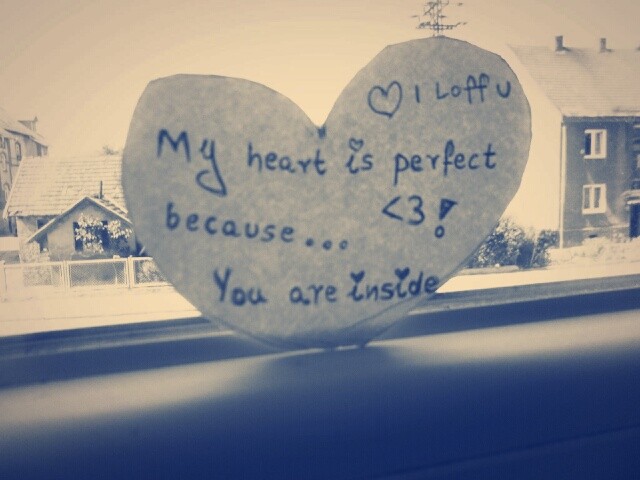 ♡ I Loff U
My heart is perfect
because... <3!
You are inside